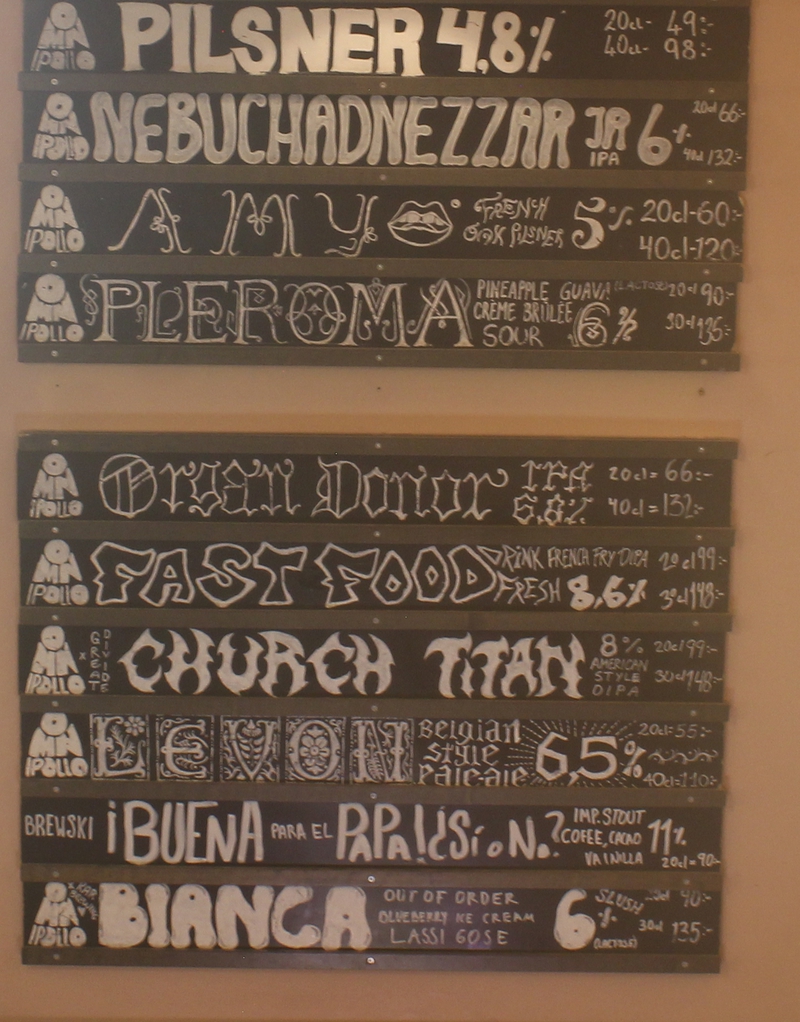 OMNIPOLLO PILSNER 4,8% 20cl- 49:-
40cl- 98:-
OMNIPOLLO NEBUCHADNEZZAR JR IPA 6% 20cl 66:-
40cl 132:-
OMNIPOLLO AMY FRENCH OAK PILSNER 5% 20cl-60:-
40cl-120:-
OMNIPOLLO PLEROMA PINEAPPLE GUAVA (LACTOSE) 20cl 90:-
CRÈME BRÛLÉE SOUR 6% 30cl 135:-
OMNIPOLLO Organ Donor IPA 20cl= 66:-
6,8% 40cl=132:-
OMNIPOLLO FAST FOOD PINK FRENCH FRY DIPA 20cl 99:-
FRESH 8,6% 30cl 148:-
OMNIPOLLO x GREAT DIVIDE CHURCH TITAN 8% 20cl 99:-
AMERICAN STYLE DIPA 30cl 148:-
OMNIPOLLO LEVON Belgian style Pale ale 6,5% 20cl=55:-
40cl=110:-
BREWSKI ¡BUENA PARA EL IMP. STOUT
COFEE, CACAO 11%
VAINILLA 20cl=90:-
OMNIPOLLO BIANCA OUT OF ORDER 6% SLUSH 90:-
BLUEBERRY ICE CREAM 30cl 135:-
LASSI GOSE (LACTOSE)